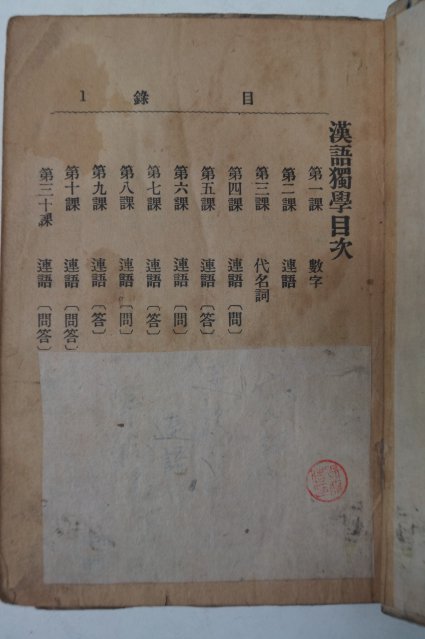 目錄 1
漢語獨學目次
第一課 數字
第二課 連語
第三課 代名詞
第四課 連語 〔問〕
第五課 連語 〔答〕
第六課 連語 〔問〕
第七課 連語 〔答〕
第八課 連語 〔問〕
第九課 連語 〔答〕
第十課 連語 〔問答〕
第三十課 連語 〔問答〕